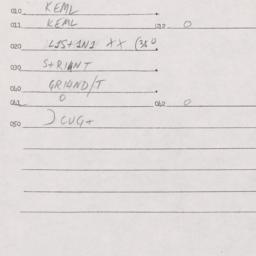 010 KEML
011 KEML 012 0
020 L15+1N1 XX (3x0
030 S+RIANT
040 GRIAND/T
041 0 042 0
050 ) CUG+